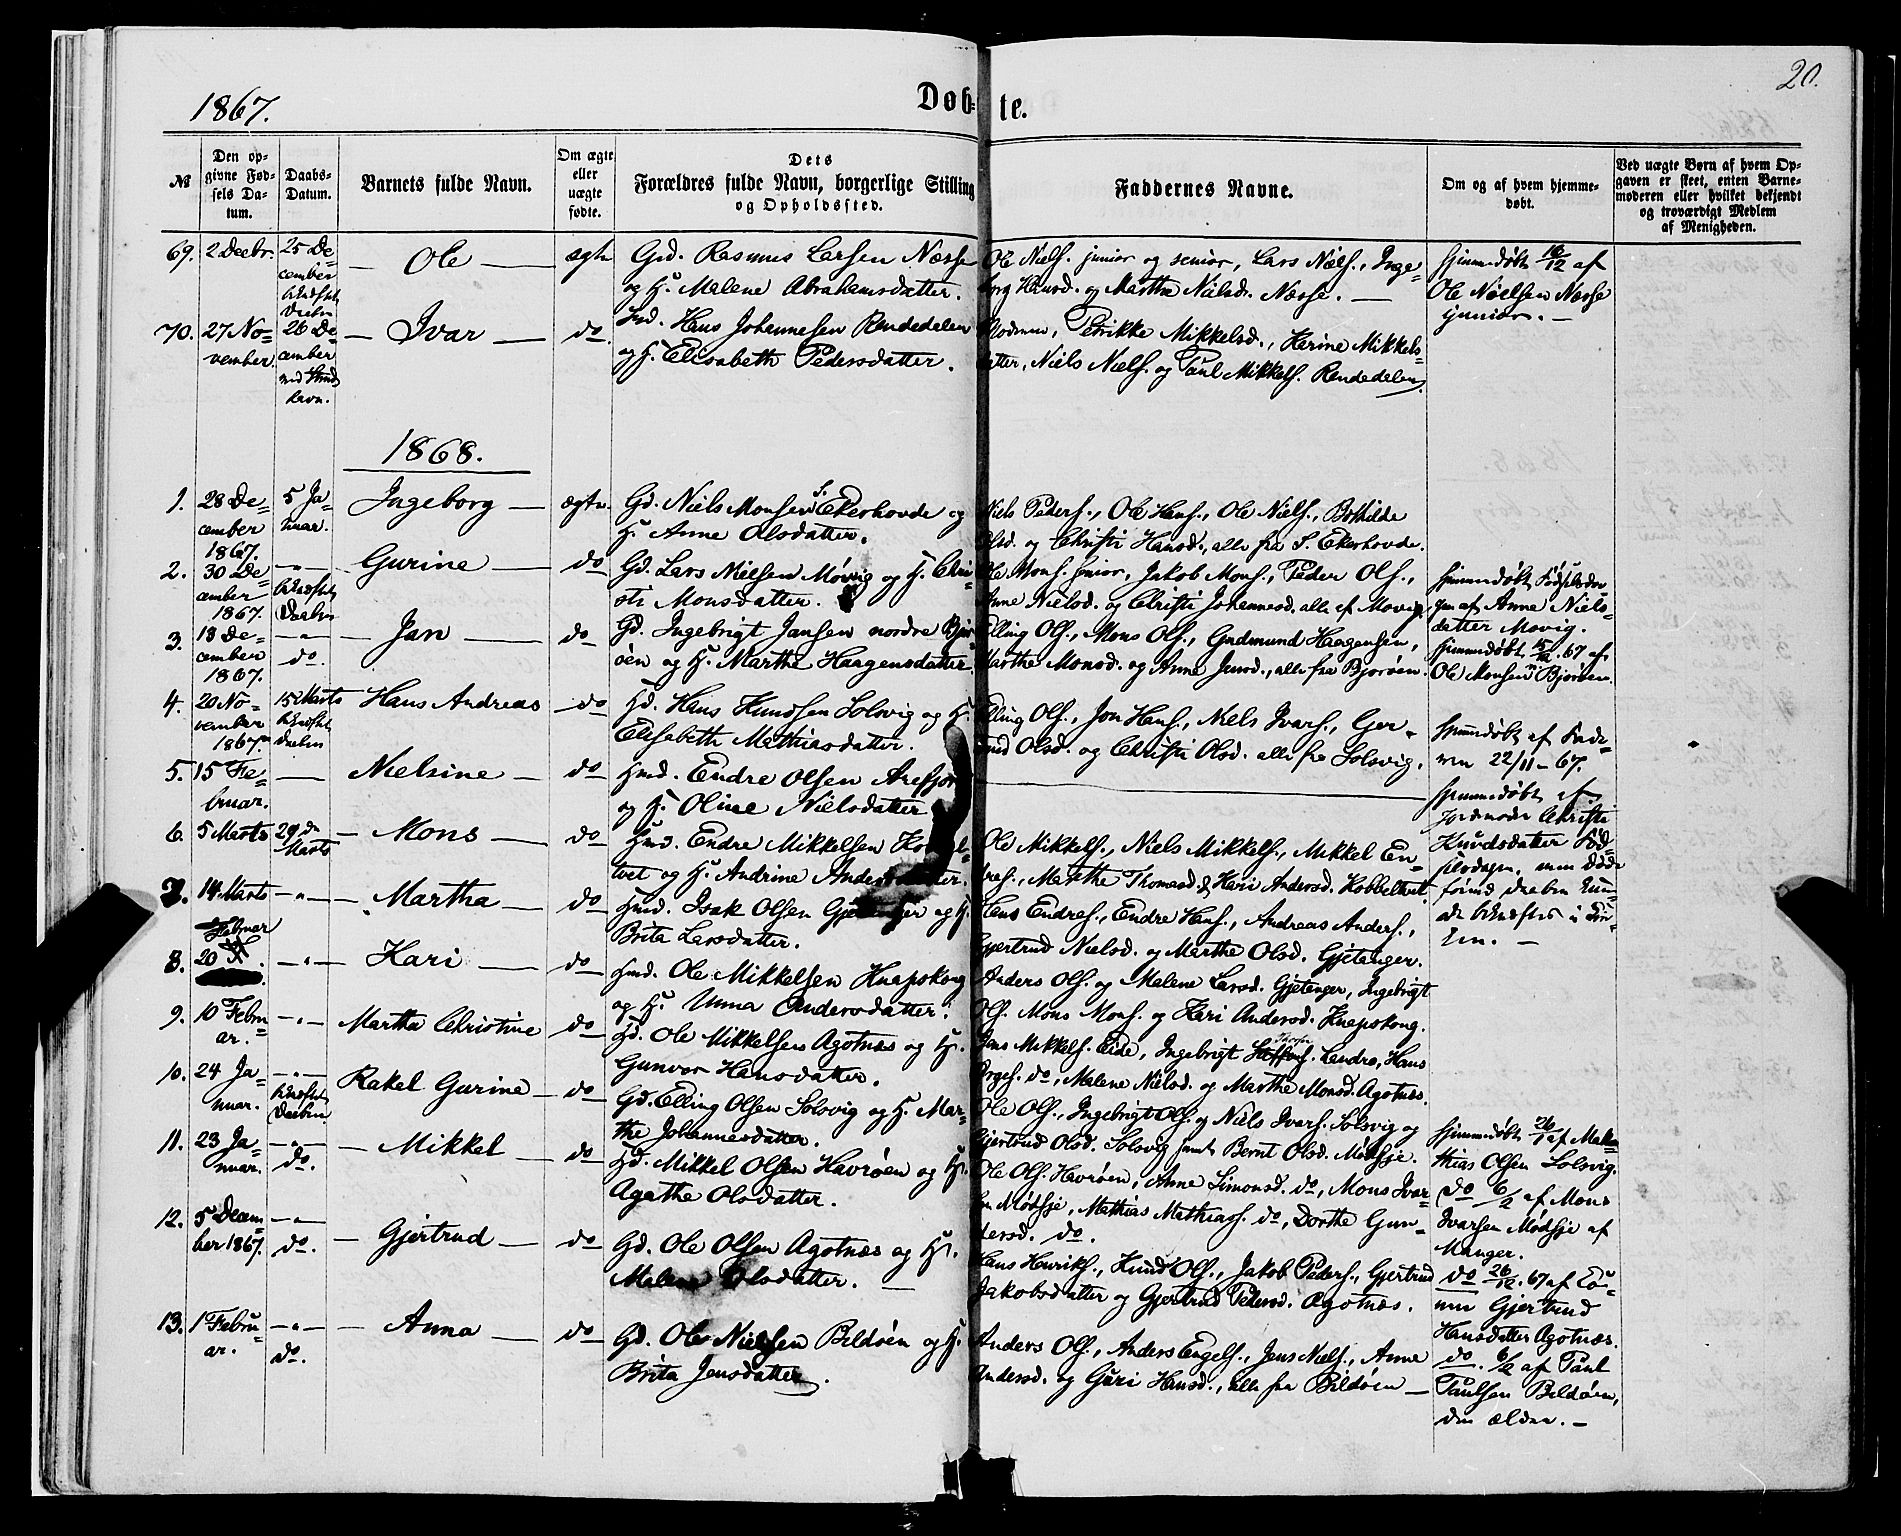 20.
1867.
Døbte.
№
Den opgivne Fødsels Datum.
Daabs-Datum.
Barnets fulde Navn.
Om ægte eller uægte fødte.
Dets Forældres fulde Navn, borgerlige Stilling og Opholdssted.
Faddernes Navne.
Om og af hvem hjemmedøbt.
Ved uægte Børn af hvem Opgaven er skeet, enten Barnemoderen eller hvilket bekjendt og troværdigt Medlem af Menigheden.
69. 2 Decbr. 25 December — Ole — ægte
Gd. Rasmus Larsen Næsse
og H. Malene Abrahamsdatter.
Ole Niels. junior og senior, Lars Niels., Inge-
borg Hansd. og Marthe Nielsd. Næsse. —
hjemmedøbt 16/12 af
Ole Nielsen Næsse
junior. —
70. 27 November 26 December — Ivar — do
Hans Johannesen Rendedalen
og H. Elisabeth Pedersdatter.
Moderen, Petrikke Mikkelsd., Karine Mikkels-
datter, Niels Niels. og Paul Mikkels. Rendedalen.
1868.
1. 28 December 1867. 5 Januar. Ingeborg — ægte.
Gd. Niels Monsen S. Ekerhovde og
H. Anne Olsdatter.
Niels Peders., Ole Hans., Ole Niels., Bothilde
Olsd. og Christi Hansd., alle fra S. Ekerhovde.
2. 30 December 1867. — " — Gurine — do
Gd. Lars Nielsen Møvig og H. Chri-
sti Monsdatter.
Ole Mons. junior, Jakob Mons., Peder Ols.,
Anne Nielsd. og Christi Johannesd. alle af Movig.
hjemmedøbt Fødselsda-
gen af Anne Niels-
datter Movig.
3. 18 December 1867. — " — do. — Jan — do
Gd. Ingebrigt Jansen nordre Bjor-
øen og H. Marthe Haagensdatter.
Elling Ols., Mons Ols., Gudmund Haagensen,
Marthe Monsd. og Anne Jansd., alle fra Bjorøen.
Ole Monsen n Bjorøen.
4. 20 November 1867. 15 Marts Hans Andreas — do
Gd. Hans Knudsen Solsvig og H.
Elisabeth Mathiasdatter.
Elling Ols., Jon Hans., Niels Ivars., Ger-
trud Olsd. og Christi Olsd. alle fra Solsvig.
hjemmedøbt af Fade-
ren 22/11-67.
5. 15 Februar. — Nielsine — do
Hmd. Endre Olsen Arefjord
og H. Oline Nielsdatter
hjemmedøbt af
Jordmoder Christi
Knudsdatter Fød-
selsdagen, men døde
førend Daaben kun-
de bekræftes i Kir-
ken. —
6. 5 Marts 29de Marts — Mons — do
Hmd. Endre Mikkelsen Kobbel-
tvet og H. Andrine Andersdatter.
Ole Mikkels., Niels Mikkels., Mikkel En-
dres., Marthe Thomasd. & Kari Andersd. Kobbeltvet.
7. 14 Marts — " — Martha — do
Hmd. Isak Olsen Gjetanger og H.
Brita Larsdatter.
Hans Endres., Endre Hans., Andreas Anders.,
Gjertrud Nielsd. og Marthe Olsd. Gjetanger.
8. 20 Februar — " — Kari — do
Hmd. Ole Mikkelsen Knapskong
og H. Anna Andersdatter.
Anders Ols. og Malene Larsd. Gjetanger, Ingebrigt
Ols. Mons Mons. og Kari Andersd. Knapskong.
9. 10 Februar. — " — Martha Christine — do
Gd. Ole Mikkelsen Agotnæs og H.
Gunvor Hansdatter.
Jens Mikkels. Eide, Ingebrigt Landro, Hans
do, Malene Nielsd. og Marthe Monsd. Agotnæs.
10. 24 Januar. — " — Rakel Gurine — do
Gd. Elling Olsen Solsvig og H. Mar-
the Johannesdatter.
Ole Ols., Ingebrigt Ols. og Niels Ivars. Solsvig og
Gjertrud Olsd. Solsvig samt Bernt Olsd. Mødsje.
hjemmedøbt 26/1 af Ma-
thias Olsen Solsvig.
11. 23 Januar. — " — do. — Mikkel — do
Gd. Mikkel Olsen Havrøen og H.
Agathe Olsdatter.
Ole Ols. Havrøen, Anne Simonsd. do, Mons Ivar-
sen Mødsje, Mathias Mathias. do, Dorthe Gun-
dersd. do.
do 6/2 af Mons
Ivarsen Mødsje af
Manger.
12. 5 December 1867. — " — do. — Gjertrud — do
Gd. Ole Olsen Agotnæs og H.
Malene Olsdatter. —
Hans Henriks., Knud Ols., Jakob Peders., Gjertrud
Jakobsdatter og Gjertrud Pedersd. Agotnæs.
do 26/12. 67 af Ko-
nen Gjertrud
Hansdatter Agotnæs.
13. 1 Februar. — " — do. — Anna — do
Gd. Ole Nielsen Bildøen og H.
Brita Jensdatter.
Anders Ols., Anders Engels., Jens Niels., Anne
Andersd. og Guri Hansd., alle fra Bildøen —
do. 6/2 af Paul
Paulsen Bildøen,
den ældre. —